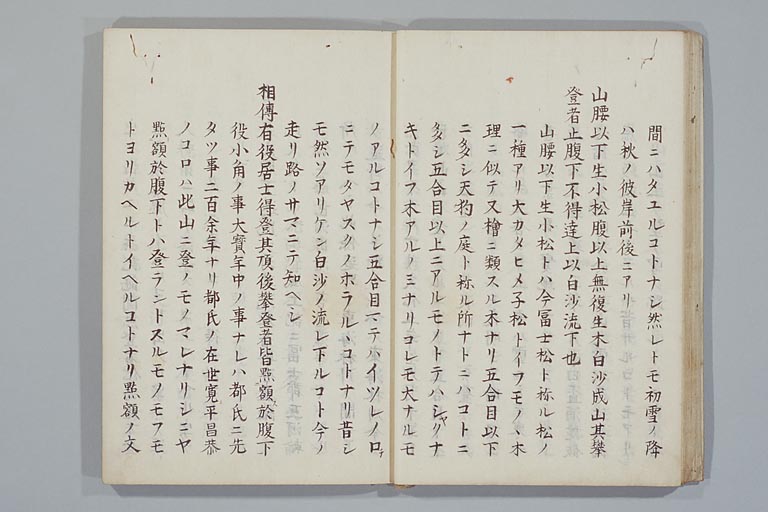 間ニハタユルコトナシ然レトモ初雪ノ降
ハ秋ノ彼岸前後ニアリ
山腰以下生小松腹以上無復生木白沙成山其攀
登者止腹下不得達上以白沙流下也
山腰以下生小松トハ今冨士松ト称ル松ノ
一種アリ大カタヒメ子松トイフモノヽ木
理ニ似テ又檜ニ類スル木ナリ五合目以下
ニ多シ天狗ノ庭ト称ル所ナトニハコトニ
多シ五合目以上ニアルモノトテハシヤクナ
キトイフ木アルノミナリコレモ大ナルモ
ノアルコトナシ五合目マテハイツレノ口
ニテモタヤスクノホラルヽコトナリ昔シ
モ然ソアリケン白沙ノ流レ下ルコト今ノ
走リ路ノサマニテ知ヘシ
相傳有役居士得登其頂後攀登者皆㸃額於腹下
役小角ノ事大寳年中ノ事ナレハ都氏ニ先
タツ事二百余年ナリ都氏ノ在世寛平昌泰
ノコロハ此山ニ登ノモノマレナリシニヤ
㸃額於腹下トハ登ラントスルモノモフモ
トヨリカヘルトイヘルコトナリ㸃額ノ文